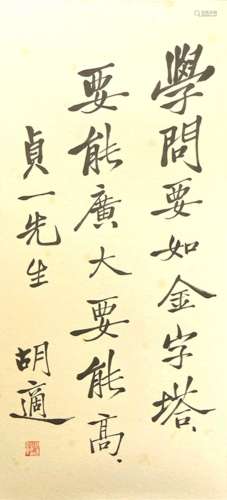 學問要如金字塔、
要能廣大要能高、
貞一先生
胡適